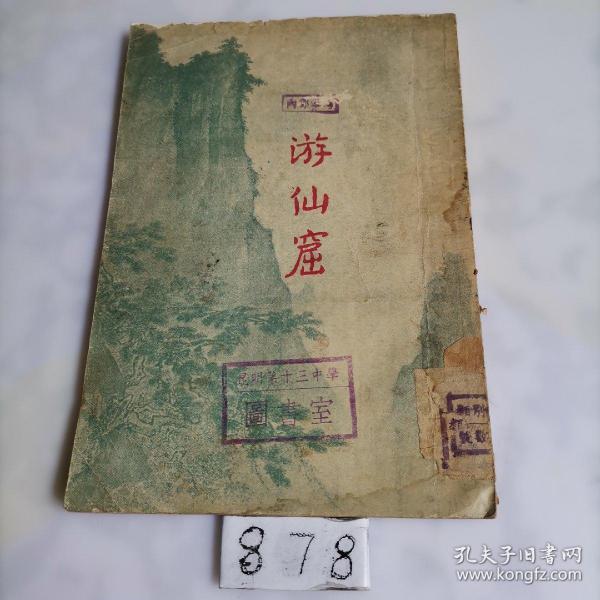 游仙窟
昆明第十三中學
圖書室
878
孔夫子旧书网
www.kongfz.com